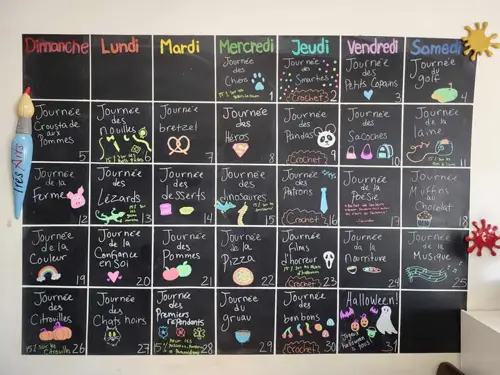 Dimanche
Lundi
Mardi
Mercredi
Jeudi
Vendredi
Samedi
Journée
des
Chiens
1
Journée
des
Smarties
Crochet
2
Journée
des
Petits Copains
3
Journée
du
golf
4
Très
Journée
Crousta de
aux
Pommes
5
Journée
des
nouilles
6
Journée
du
bretzel
7
Journée
des
Héros
8
Journée
des
Pandas
Crochet
9
Journée
des
Sacoches
10
Journée
de la
laine
11
Journée
de la
Ferme
12
Journée
des
Lézards
13
Journée
des
desserts
14
Journée
des
dinosaires
15
Journée
des
Patrons
Crochet
16
Journée
de la
Poésie
17
Journée
des
Muffins
au
Chocolat
18
Journée
de la
Couleur
19
Journée
de la
Confiance
en Soi
20
Journée
des
Pommes
21
Journée
de la
Pizza
22
Journée
des
films
d'horreur
Crochet
23
Journée
de la
nourriture
24
Journée
de la
Musique
25
Journée
des
Citrouilles
15% sur les
Citrouilles
26
Journée
des
Chats noirs
27
Journée
des
Premiers
répondants
15%
28
Journée
du
gruau
29
Journée
des
bonbons
Crochet
30
Halloween!
Joyeux
Halloween
à tous!
31